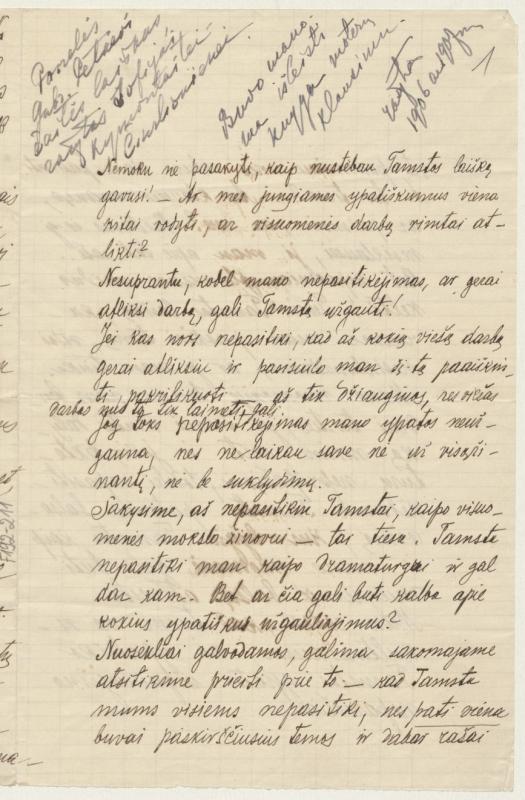 Panelės
Gabr. Petkevi
laiškas
rašytas Sofijai
Kymantaitei
Čiurlionienei.
Buvo mano-
ma išleisti
knygą moterų
klausimu.
rašyta
1906 m.
1
Nemoku nė pasakyti, kaip nustebau Tamstos laišką
gavusi! — Ar mes jungiamės ypatiškumus viena
kitai rodyti, ar visuomenės darbą rimtai at-
likti?
Nesuprantu, kodel mano nepasitikėjimas, ar gerai
atliksi darbą, gali Tamstą užgauti!
Jei kas nors nepasitiki, kad aš kokį viešą darbą
gerai atliksiu ir pasisiulo man šį tą paaiškin-
ti, pakritikuoti — aš tik džiaugiuos, nes
darbas nuo to tik laimėti gali.
Jog toks nepasitikėjimas mano ypatos neuž-
gauna, nes ne laikau save nė už visoži-
nantį, nė be suklydimų.
Sakysime, aš nepasitikiu Tamstai, kaipo visuo-
menės mokslo žinovei — tai tiesa. Tamsta
nepasitiki man kaipo dramaturgei ir gal
dar kam. Bet ar čia gali buti kalba apie
kokius ypatiškus užgauliojimus?
Nuosekliai galvodamos, galima sakomajame
atsitikime prieiti prie to — kad Tamsta
mums visiems nepasitiki, nes pati viena
buvai paskirsčiusi temas ir dabar rašai
1792-211